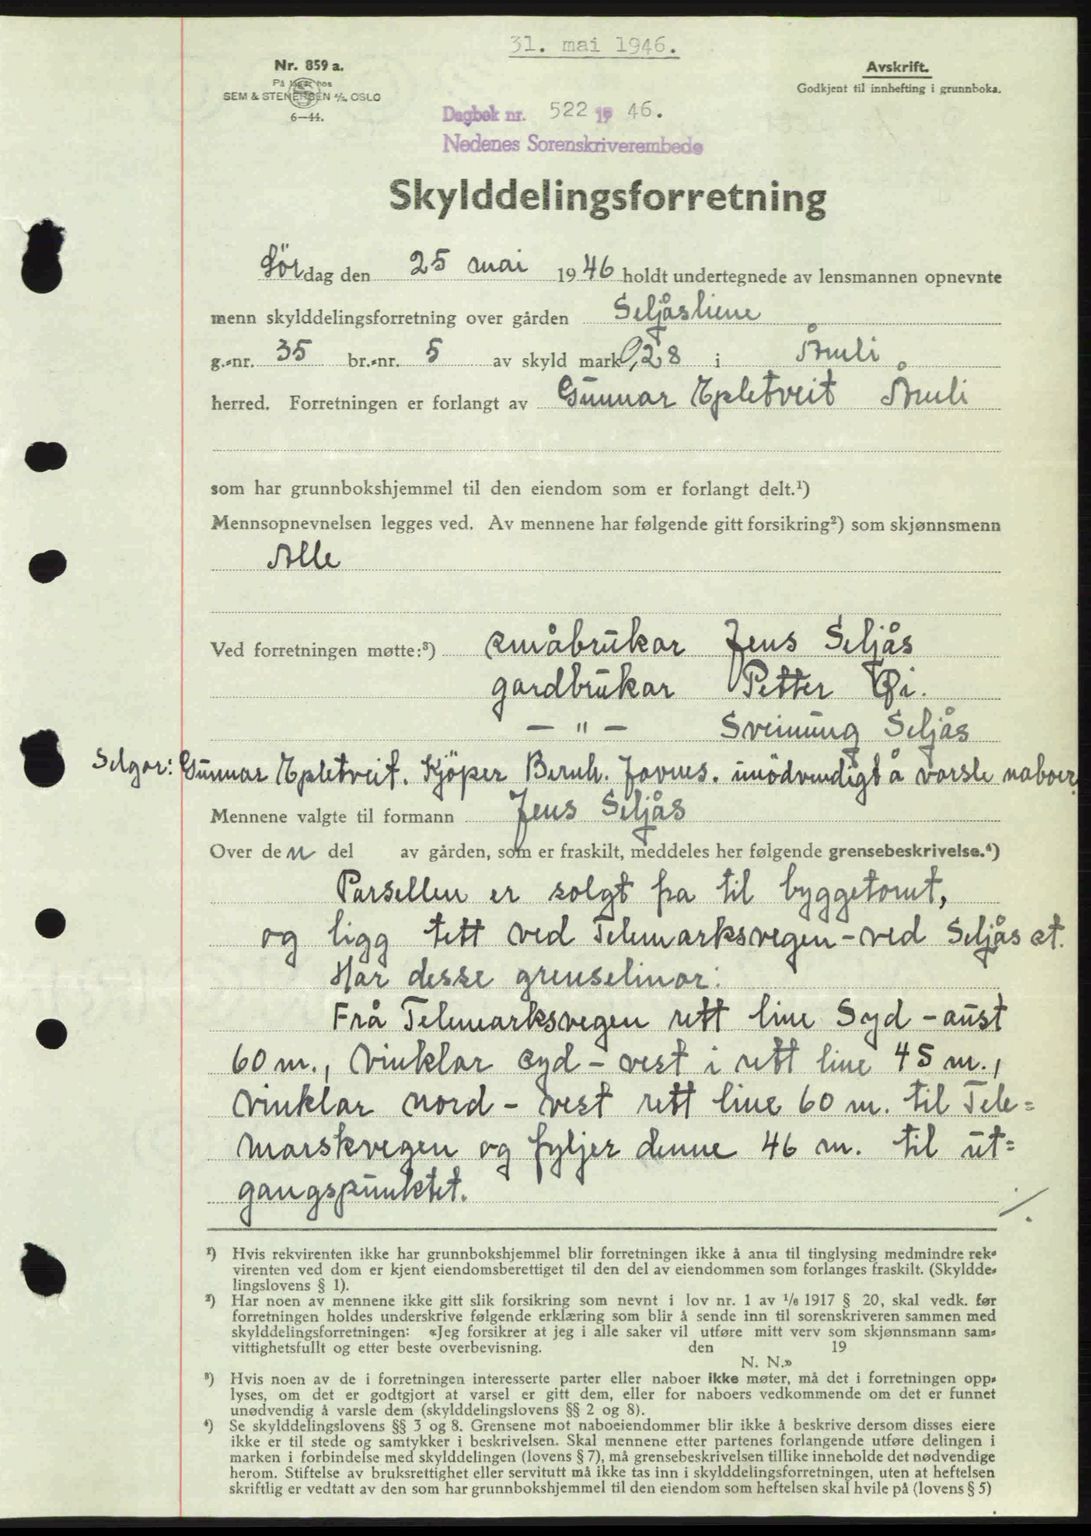 31. mai 1946.
Nr. 859 a.
På lager hos
SEM & STENERSEN A/S, OSLO
6—44.
Avskrift.
Godkjent til innhefting i grunnboka.
Dagbok nr. 522 19 46.
Nedenes Sorenskriverembede
Skylddelingsforretning
Lördag den 25 mai 1946 holdt undertegnede av lensmannen opnevnte
menn skylddelingsforretning over gården Seljåsliene
g.-nr. 35 br.-nr. 5 av skyld mark 0,28 i Åmli
herred. Forretningen er forlangt av Gunnar Epletveit Åmli
som har grunnbokshjemmel til den eiendom som er forlangt delt.¹)
Mennsopnevnelsen legges ved. Av mennene har følgende gitt forsikring²) som skjønnsmenn
Alle
Ved forretningen møtte:³) småbrukar Jens Seljås
gardbrukar Petter Øi.
— " — Sveinung Seljås
Selgar: Gunnar Epletveit. Kjöper Bernh. Jovnes. unödvendigt å varsle naboer.
Mennene valgte til formann Jens Seljås
Over den del av gården, som er fraskilt, meddeles her følgende grensebeskrivelse.⁴)
Parsellen er solgt fra til byggetomt,
og ligg tett ved Telemarksvegen - ved Seljås st.
Har desse grenselinor:
Frå Telemarksvegen rett line Syd - aust
60 m., vinklar syd - vest i rett line 45 m.,
vinklar nord - vest rett line 60 m. til Tele=
marskvegen og fyljer denne 46 m. til ut=
gangspunktet.
./.
¹) Hvis rekvirenten ikke har grunnbokshjemmel blir forretningen ikke å anta til tinglysing medmindre rek-
virenten ved dom er kjent eiendomsberettiget til den del av eiendommen som forlanges fraskilt. (Skyldde-
lingslovens § 1).
²) Har noen av mennene ikke gitt slik forsikring som nevnt i lov nr. 1 av 1/6 1917 § 20, skal vedk. før
forretningen holdes underskrive følgende erklæring som blir å sende inn til sorenskriveren sammen med
skylddelingsforretningen: «Jeg forsikrer at jeg i alle saker vil utføre mitt verv som skjønnsmann sam-
vittighetsfullt og etter beste overbevisning. den 19
N. N.»
³) Hvis noen av de i forretningen interesserte parter eller naboer ikke møter, må det i forretningen opp-
lyses, om det er godtgjort at varsel er gitt dem, eller for naboers vedkommende om det er funnet
unødvendig å varsle dem (skylddelingslovens §§ 2 og 8).
⁴) Se skylddelingslovens §§ 3 og 8. Grensene mot naboeiendommer blir ikke å beskrive dersom disses eiere
ikke er til stede og samtykker i beskrivelsen. Skal mennene etter partenes forlangende utføre delingen i
marken i forbindelse med skylddelingen (lovens § 7), må grensebeskrivelsen tillike inneholde det nødvendige
herom. Stiftelse av bruksrettighet eller servitutt må ikke tas inn i skylddelingsforretningen, uten at heftelsen
skriftlig er vedtatt av den som har grunnbokshjemmel til den eiendom som heftelsen skal hvile på (lovens § 5)